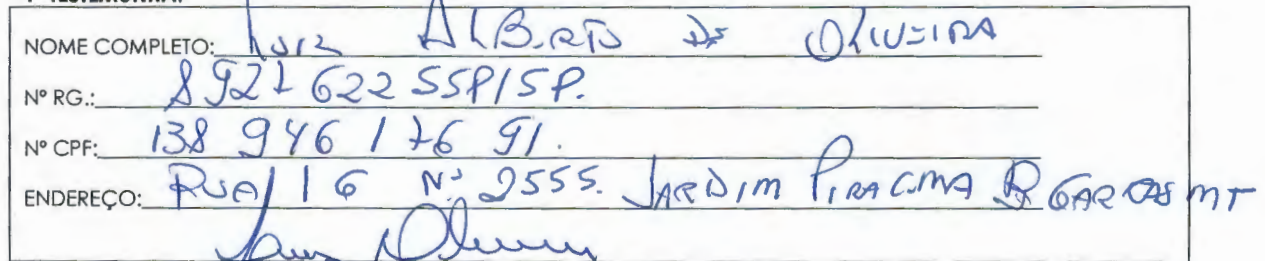 1ª TESTEMUNHA:
NOME COMPLETO: Luiz ALBERTO DE OLIVEIRA
Nº RG.: 8927622 SSP/SP.
Nº CPF: 138 946 176 91.
ENDEREÇO: RUA 16 Nº 2555. JARDIM PIRACEMA B GARÇAS MT